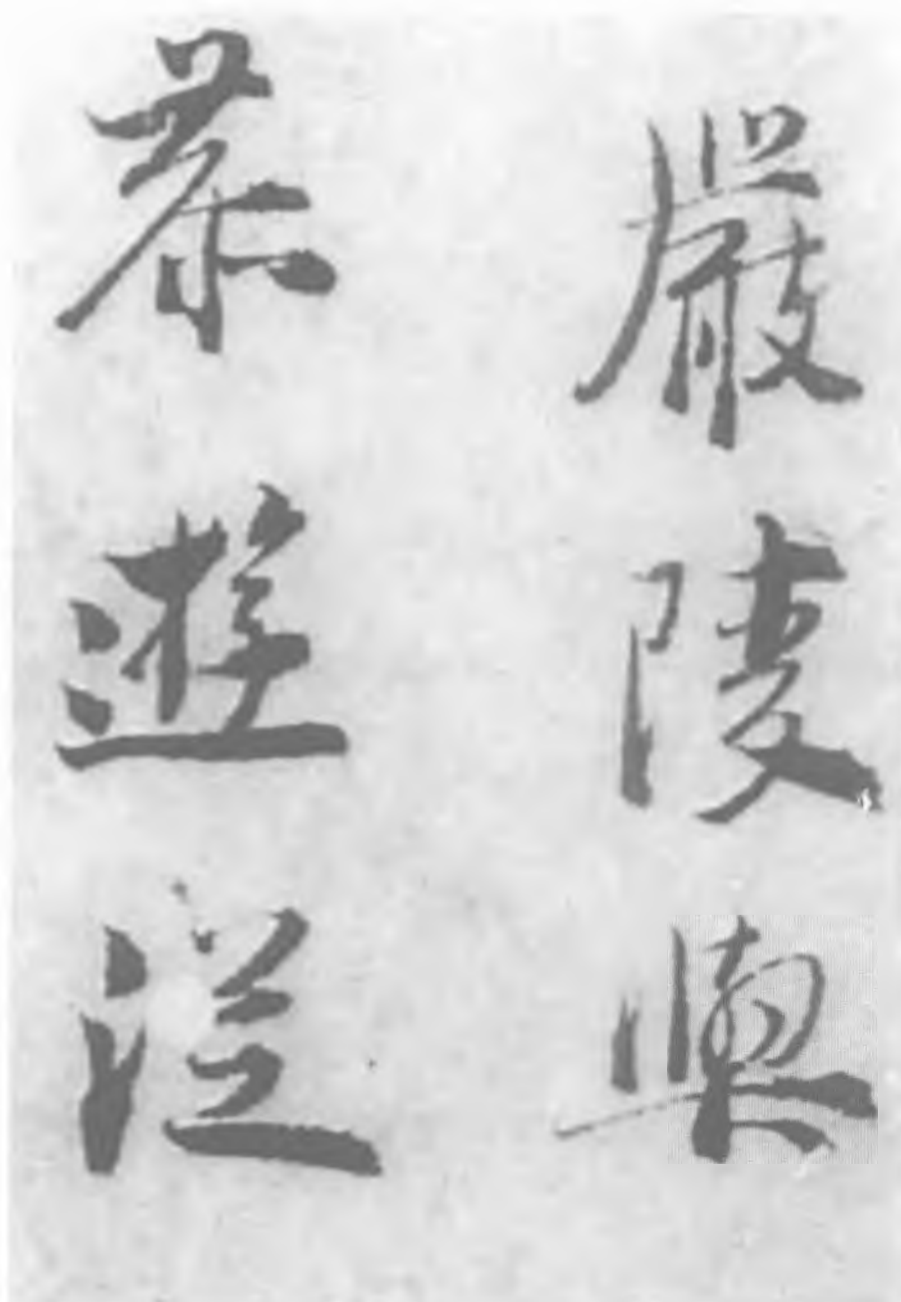 嚴陵與
恭遊從